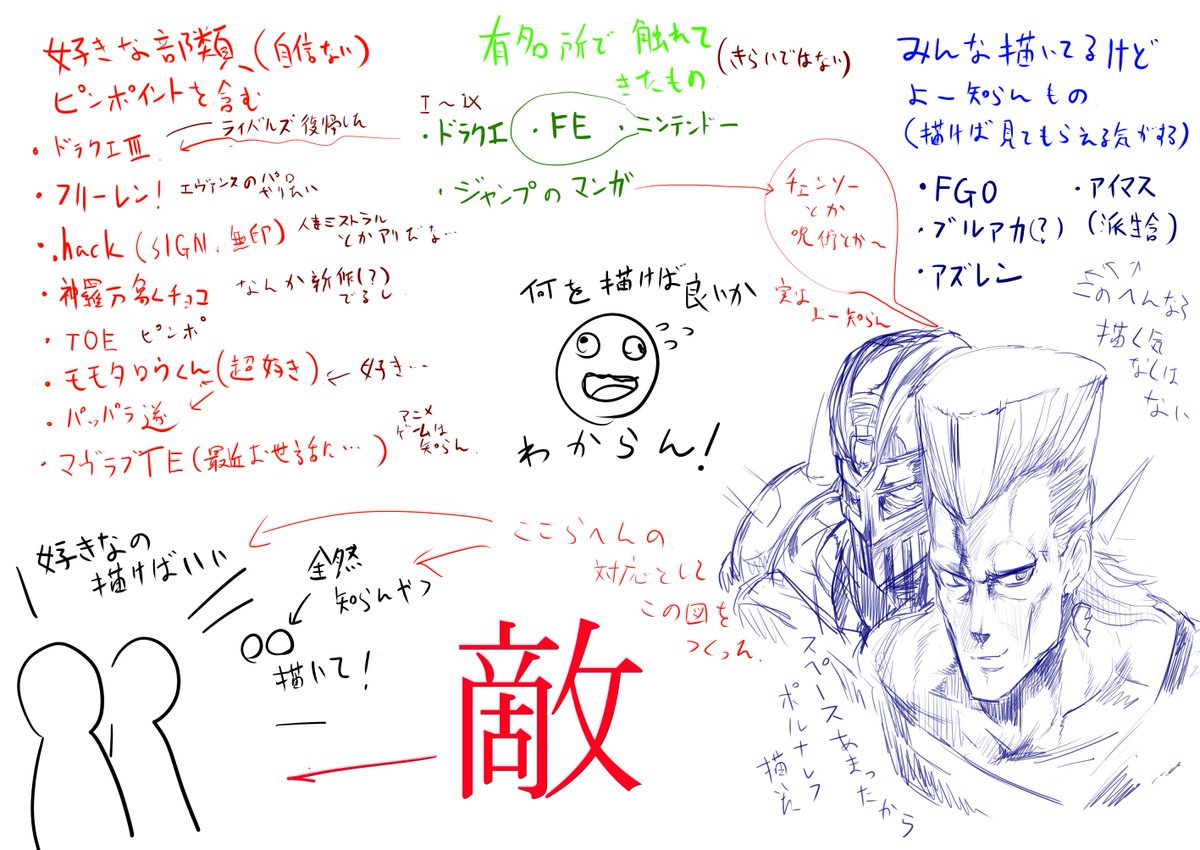 好きな部類、(自信ない)
ピンポイントを含む
・ドラクエⅢ
ライバルズ復帰した
・フリーレン!
エヴァンスのパロ
やりたい
・.hack(SIGN.無印)
人妻ミストラル
とかアリだな…
・神羅万象チョコ
なんか新作(?)
でるし
・TOE ピンポ
・モモタロウくん(超好き)
好き…
・パッパラ遂
・マヴラブTE(最近お世話た…)
アニメ
ゲームは
知らん.
有名所で触れて
きたもの
(きらいではない)
Ⅰ〜Ⅸ
・ドラクエ ・FE ・ニンテンドー
・ジャンプのマンガ
チェンソー
とか
呪術とか〜
実は
よー知らん
みんな描いてるけど
よー知らんもの
(描けば見てもらえる気がする)
・FGO ・アイマス
・ブルアカ(?) (派生含)
・アズレン
このへんなら
描く気
なくは
ない
何を描けば良いか
わからん!
好きなの
描けばいい
全然
知らんやつ
○○
描いて!
ここらへんの
対応として
この図を
つくった.
敵
スペースあまったから
ポルナレフ
描いた